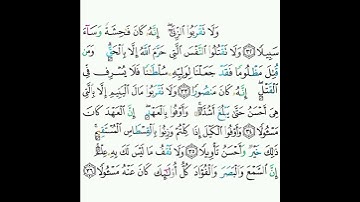 وَلَا تَقْرَبُوا۟ ٱلزِّنَىٰٓ ۖ إِنَّهُۥ كَانَ فَـٰحِشَةً وَسَآءَ
سَبِيلًا ٣٢ وَلَا تَقْتُلُوا۟ ٱلنَّفْسَ ٱلَّتِى حَرَّمَ ٱللَّهُ إِلَّا بِٱلْحَقِّ ۗ وَمَن
قُتِلَ مَظْلُومًا فَقَدْ جَعَلْنَا لِوَلِيِّهِۦ سُلْطَـٰنًا فَلَا يُسْرِف فِّى
ٱلْقَتْلِ ۖ إِنَّهُۥ كَانَ مَنصُورًا ٣٣ وَلَا تَقْرَبُوا۟ مَالَ ٱلْيَتِيمِ إِلَّا بِٱلَّتِى
هِىَ أَحْسَنُ حَتَّىٰ يَبْلُغَ أَشُدَّهُۥ ۚ وَأَوْفُوا۟ بِٱلْعَهْدِ ۖ إِنَّ ٱلْعَهْدَ كَانَ
مَسْـُٔولًا ٣٤ وَأَوْفُوا۟ ٱلْكَيْلَ إِذَا كِلْتُمْ وَزِنُوا۟ بِٱلْقِسْطَاسِ ٱلْمُسْتَقِيمِ ۚ
ذَٰلِكَ خَيْرٌ وَأَحْسَنُ تَأْوِيلًا ٣٥ وَلَا تَقْفُ مَا لَيْسَ لَكَ بِهِۦ عِلْمٌ ۚ
إِنَّ ٱلسَّمْعَ وَٱلْبَصَرَ وَٱلْفُؤَادَ كُلُّ أُو۟لَـٰٓئِكَ كَانَ عَنْهُ مَسْـُٔولًا ٣٦